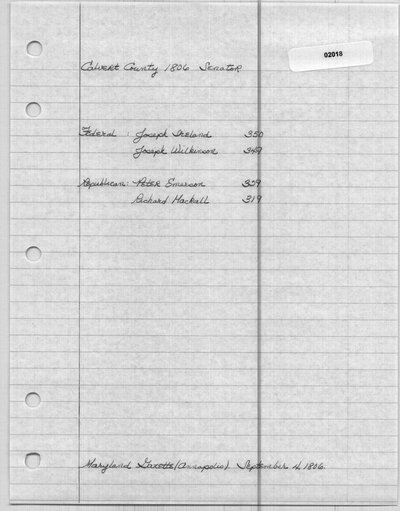 02018
Calvert County 1806 Senator
Federal : Joseph Ireland 350
Joseph Wilkinson 349
Republican: Peter Emerson 339
Richard Mackall 319
Maryland Gazette (Annapolis) September 4, 1806.